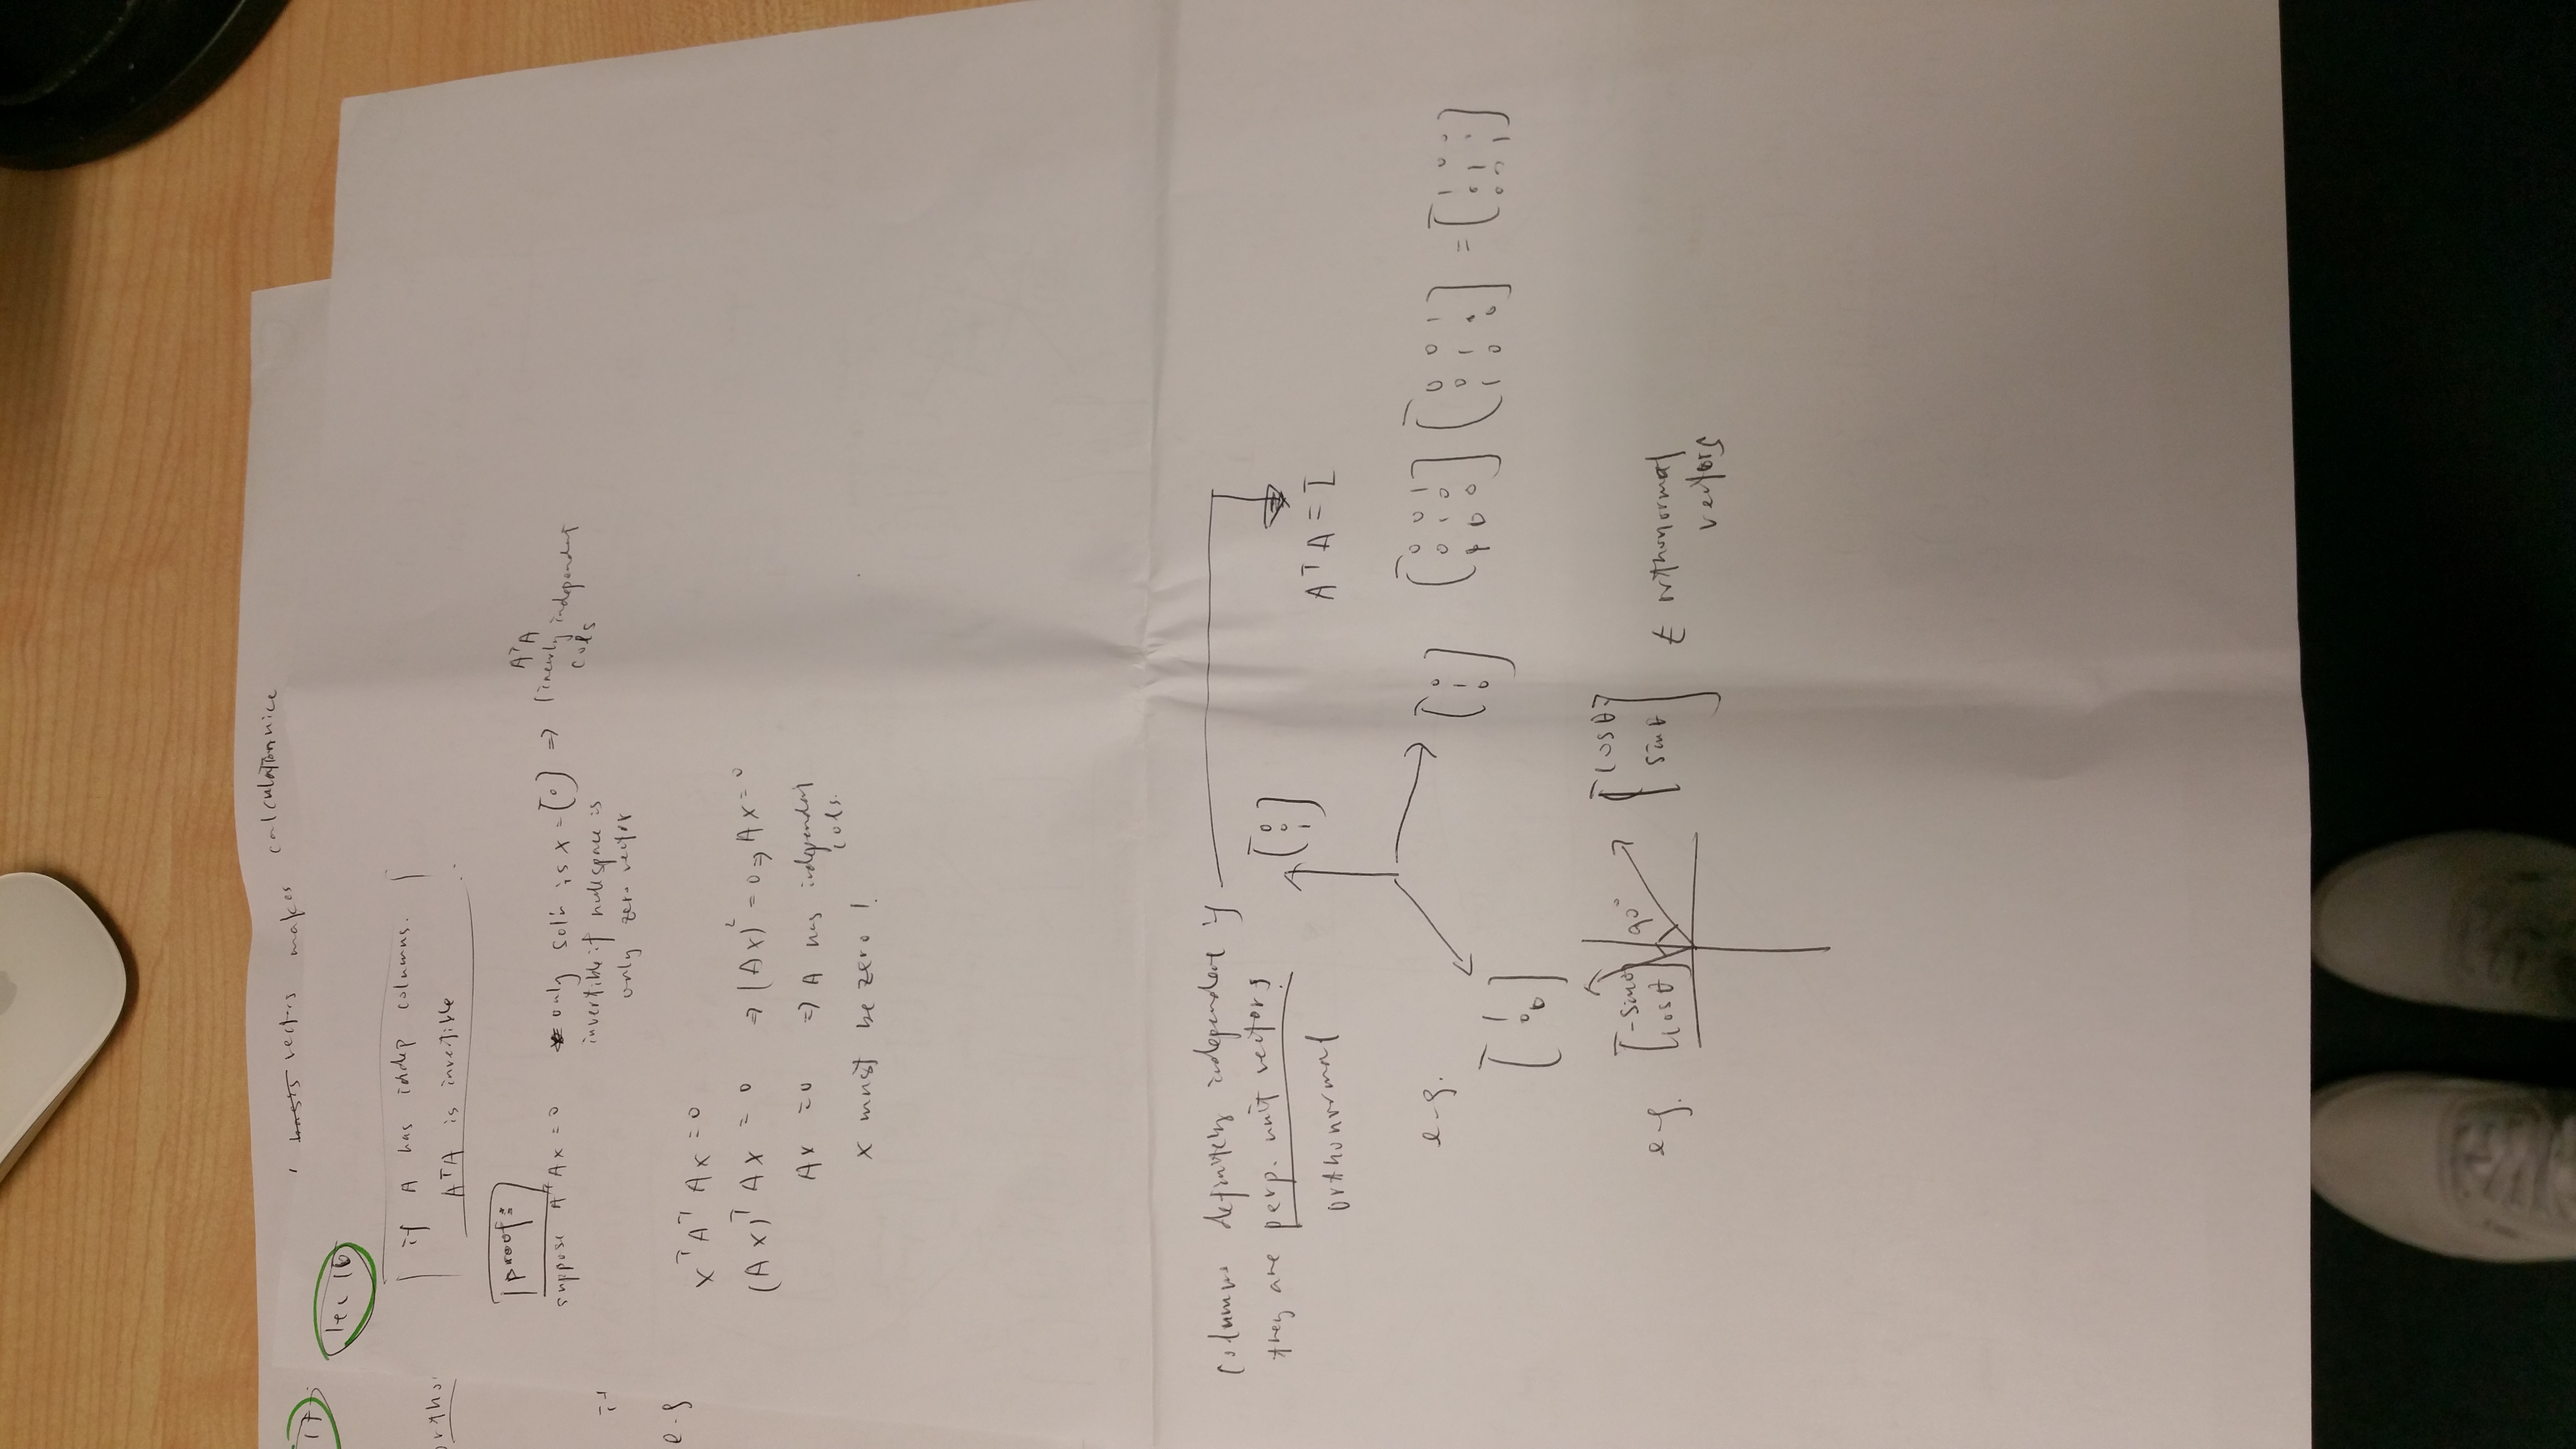 vectors makes calculation nice
17
lec 16
ortho
if A has indep columns.
AᵀA is invertible
proof:
suppose AᵀAx = 0
only sol'n is x = [0] ⇒ AᵀA linearly independent cols
invertible if nullspace is
only zero vector
e.g
xᵀAᵀAx = 0
(Ax)ᵀAx = 0 ⇒ (Ax)² = 0 ⇒ Ax = 0
Ax = 0 ⇒ A has independent cols.
x must be zero!
columns definitely independent if
they are perp. unit vectors.
orthonormal
[0 0 1]
AᵀA = I
e.g.
[0 1 0]
[1 0 0]
[0 0 1; 0 1 0; 1 0 0] [0 0 1; 0 1 0; 1 0 0] = [1 0 0; 0 1 0; 0 0 1]
e.g. [-sinθ cosθ] 90° [cosθ sinθ] orthonormal
vectors